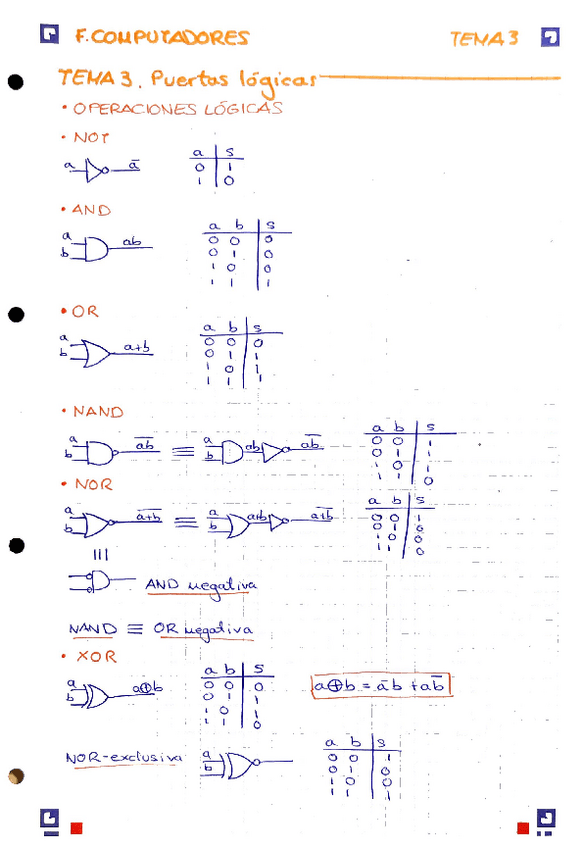 F.COMPUTADORES TEMA 3
TEMA 3. Puertas lógicas
• OPERACIONES LÓGICAS
• NOT
a ā
a s
0 1
1 0
• AND
a b ab
a b s
0 0 0
0 1 0
1 0 0
1 1 1
• OR
a b a+b
a b s
0 0 0
0 1 1
1 0 1
1 1 1
• NAND
a b a̅b̅ ≡ a b ab a̅b̅
a b s
0 0 1
0 1 1
1 0 1
1 1 0
• NOR
a b a̅+̅b̅ ≡ a b a+b a̅+̅b̅
a b s
0 0 1
0 1 0
1 0 0
1 1 0
≡
AND negativa
NAND ≡ OR negativa
• XOR
a b a⊕b
a b s
0 0 0
0 1 1
1 0 1
1 1 0
a⊕b = āb + ab̅
NOR-exclusiva a b
a b s
0 0 1
0 1 0
1 0 0
1 1 1